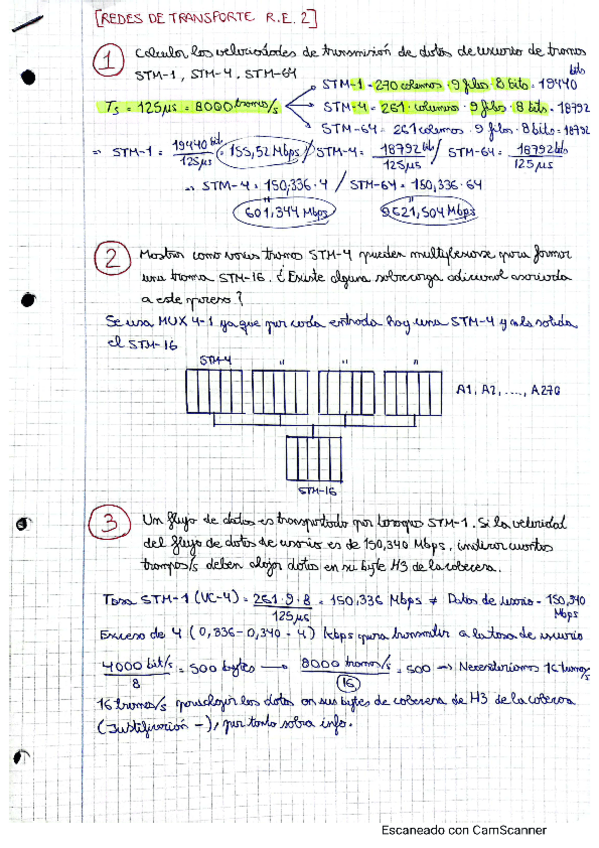 [REDES DE TRANSPORTE R.E. 2]
1 Calcular las velocidades de transmisión de datos de usuario de tramas
STM-1, STM-4, STM-64
STM-1 = 270 columnas · 9 filas · 8 bits = 19440 bits
Ts = 125µs = 8000 tramas/s
STM-4 = 261 · columnas · 9 filas · 8 bits = 18792
STM-64 = 261 columnas · 9 filas · 8 bits = 18792
⇒ STM-1 = 19440 bits / 125µs = 155,52 Mbps / STM-4 = 18792 bits / 125µs / STM-64 = 18792 bits / 125µs
⇒ STM-4 = 150,336 · 4 / STM-64 = 150,336 · 64
601,344 Mbps 9621,504 Mbps
2 Mostrar como varias tramas STM-4 pueden multiplexarse para formar
una trama STM-16. ¿Existe alguna sobrecarga adicional asociada
a este proceso?
Se usa MUX 4-1 ya que por cada entrada hay una STM-4 y a la salida
el STM-16
STM-4 " " "
A1, A2, ...., A270
STM-16
3 Un flujo de datos es transportado por bloques STM-1. Si la velocidad
del flujo de datos de usuario es de 150,340 Mbps, indicar cuantas
trampas/s deben alojar datos en su byte H3 de la cabecera.
Tasa STM-1 (VC-4) = 261 · 9 · 8 / 125µs = 150,336 Mbps ≠ Datos de usuario = 150,340 Mbps
Exceso de 4 (0,336 - 0,340 = 4) kbps para transmitir a la tasa de usuario
4000 bit/s / 8 = 500 bytes → 8000 tramas/s / 16 = 500 → Necesitaríamos 16 tramas/s
16 tramas/s para alojar los datos en sus bytes de cabecera de H3 de la cabecera
(Justificación -), por tanto sobra info.
Escaneado con CamScanner